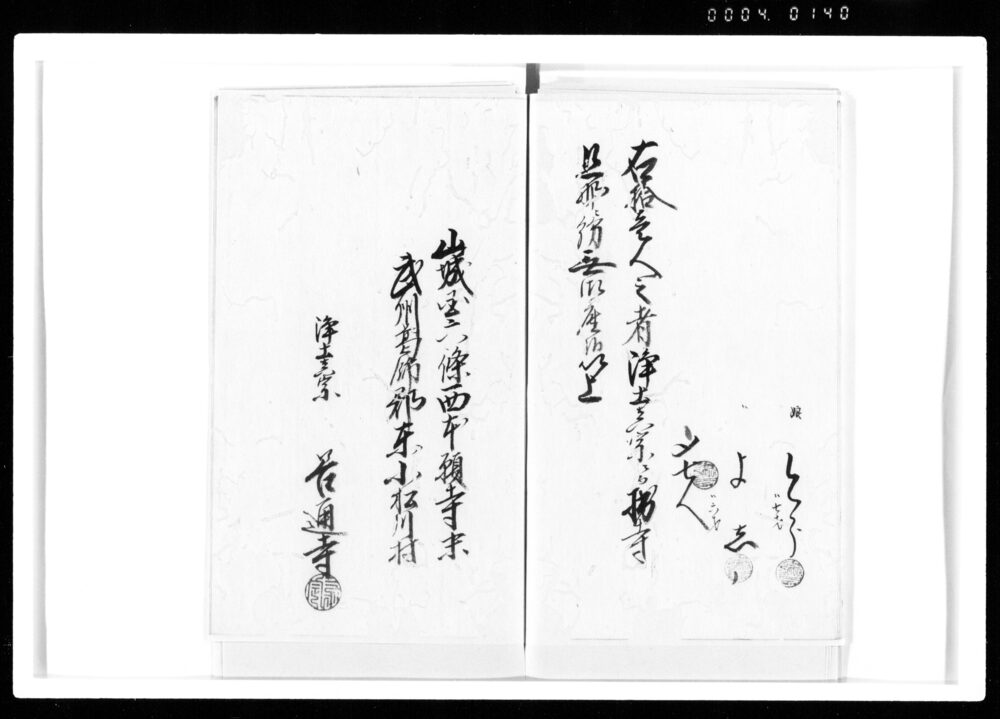 0004. 0140
娘
〃七才
よ志
〃六才
〆七人
右拾壱人之者浄土真宗ニ而
寺
旦那ニ紛無御座候以上
山城国六條西本願寺末
武州葛飾郡東小松川村
浄土真宗
善通寺